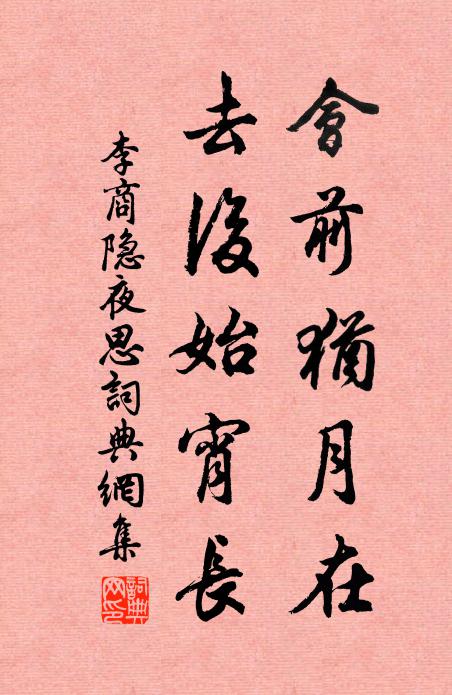 會前猶月在
去後始宵長
李商隐夜思詞典網集
詞典网印